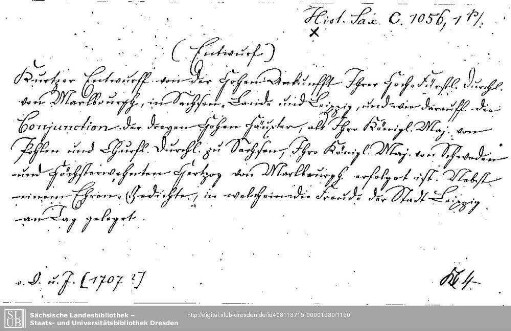 Hist. Sax. C. 1056, 1 
(Entwurf)
Kurtzer Entwurff von der Hohen Ankunfft Ihrer Hoch-Fürstl. Durchl.
von Marlbourgh, in Sachsen, Lande und Leipzig, und wie darauff die
Conjunction der dreyen Hohen Häupter, als Ihro Königl. Maj. von
Pohlen und Churfl. Durchl. zu Sachsen, Ihro Königl. Maj. von Schweden
und Höchsterwehnten Hertzog von Marlbourgh erfolget ist. Nebst
einem Ehren-Gedichte, in welchem die Freude der Stadt Leipzig
an Tag geleget.
o. O. u. J. [1707?]
4
SLUB
Sächsische Landesbibliothek –
Staats- und Universitätsbibliothek Dresden